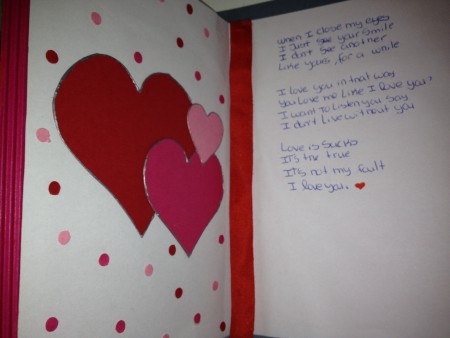 when I close my eyes
I Just see your smile
I don't see another
Like yours, for a while
I love you in that way
You Love me Like I love you?
I want To Listen you say
I don't Live without you
Love is Sucks
It's the true
It's not my fault
I love you.